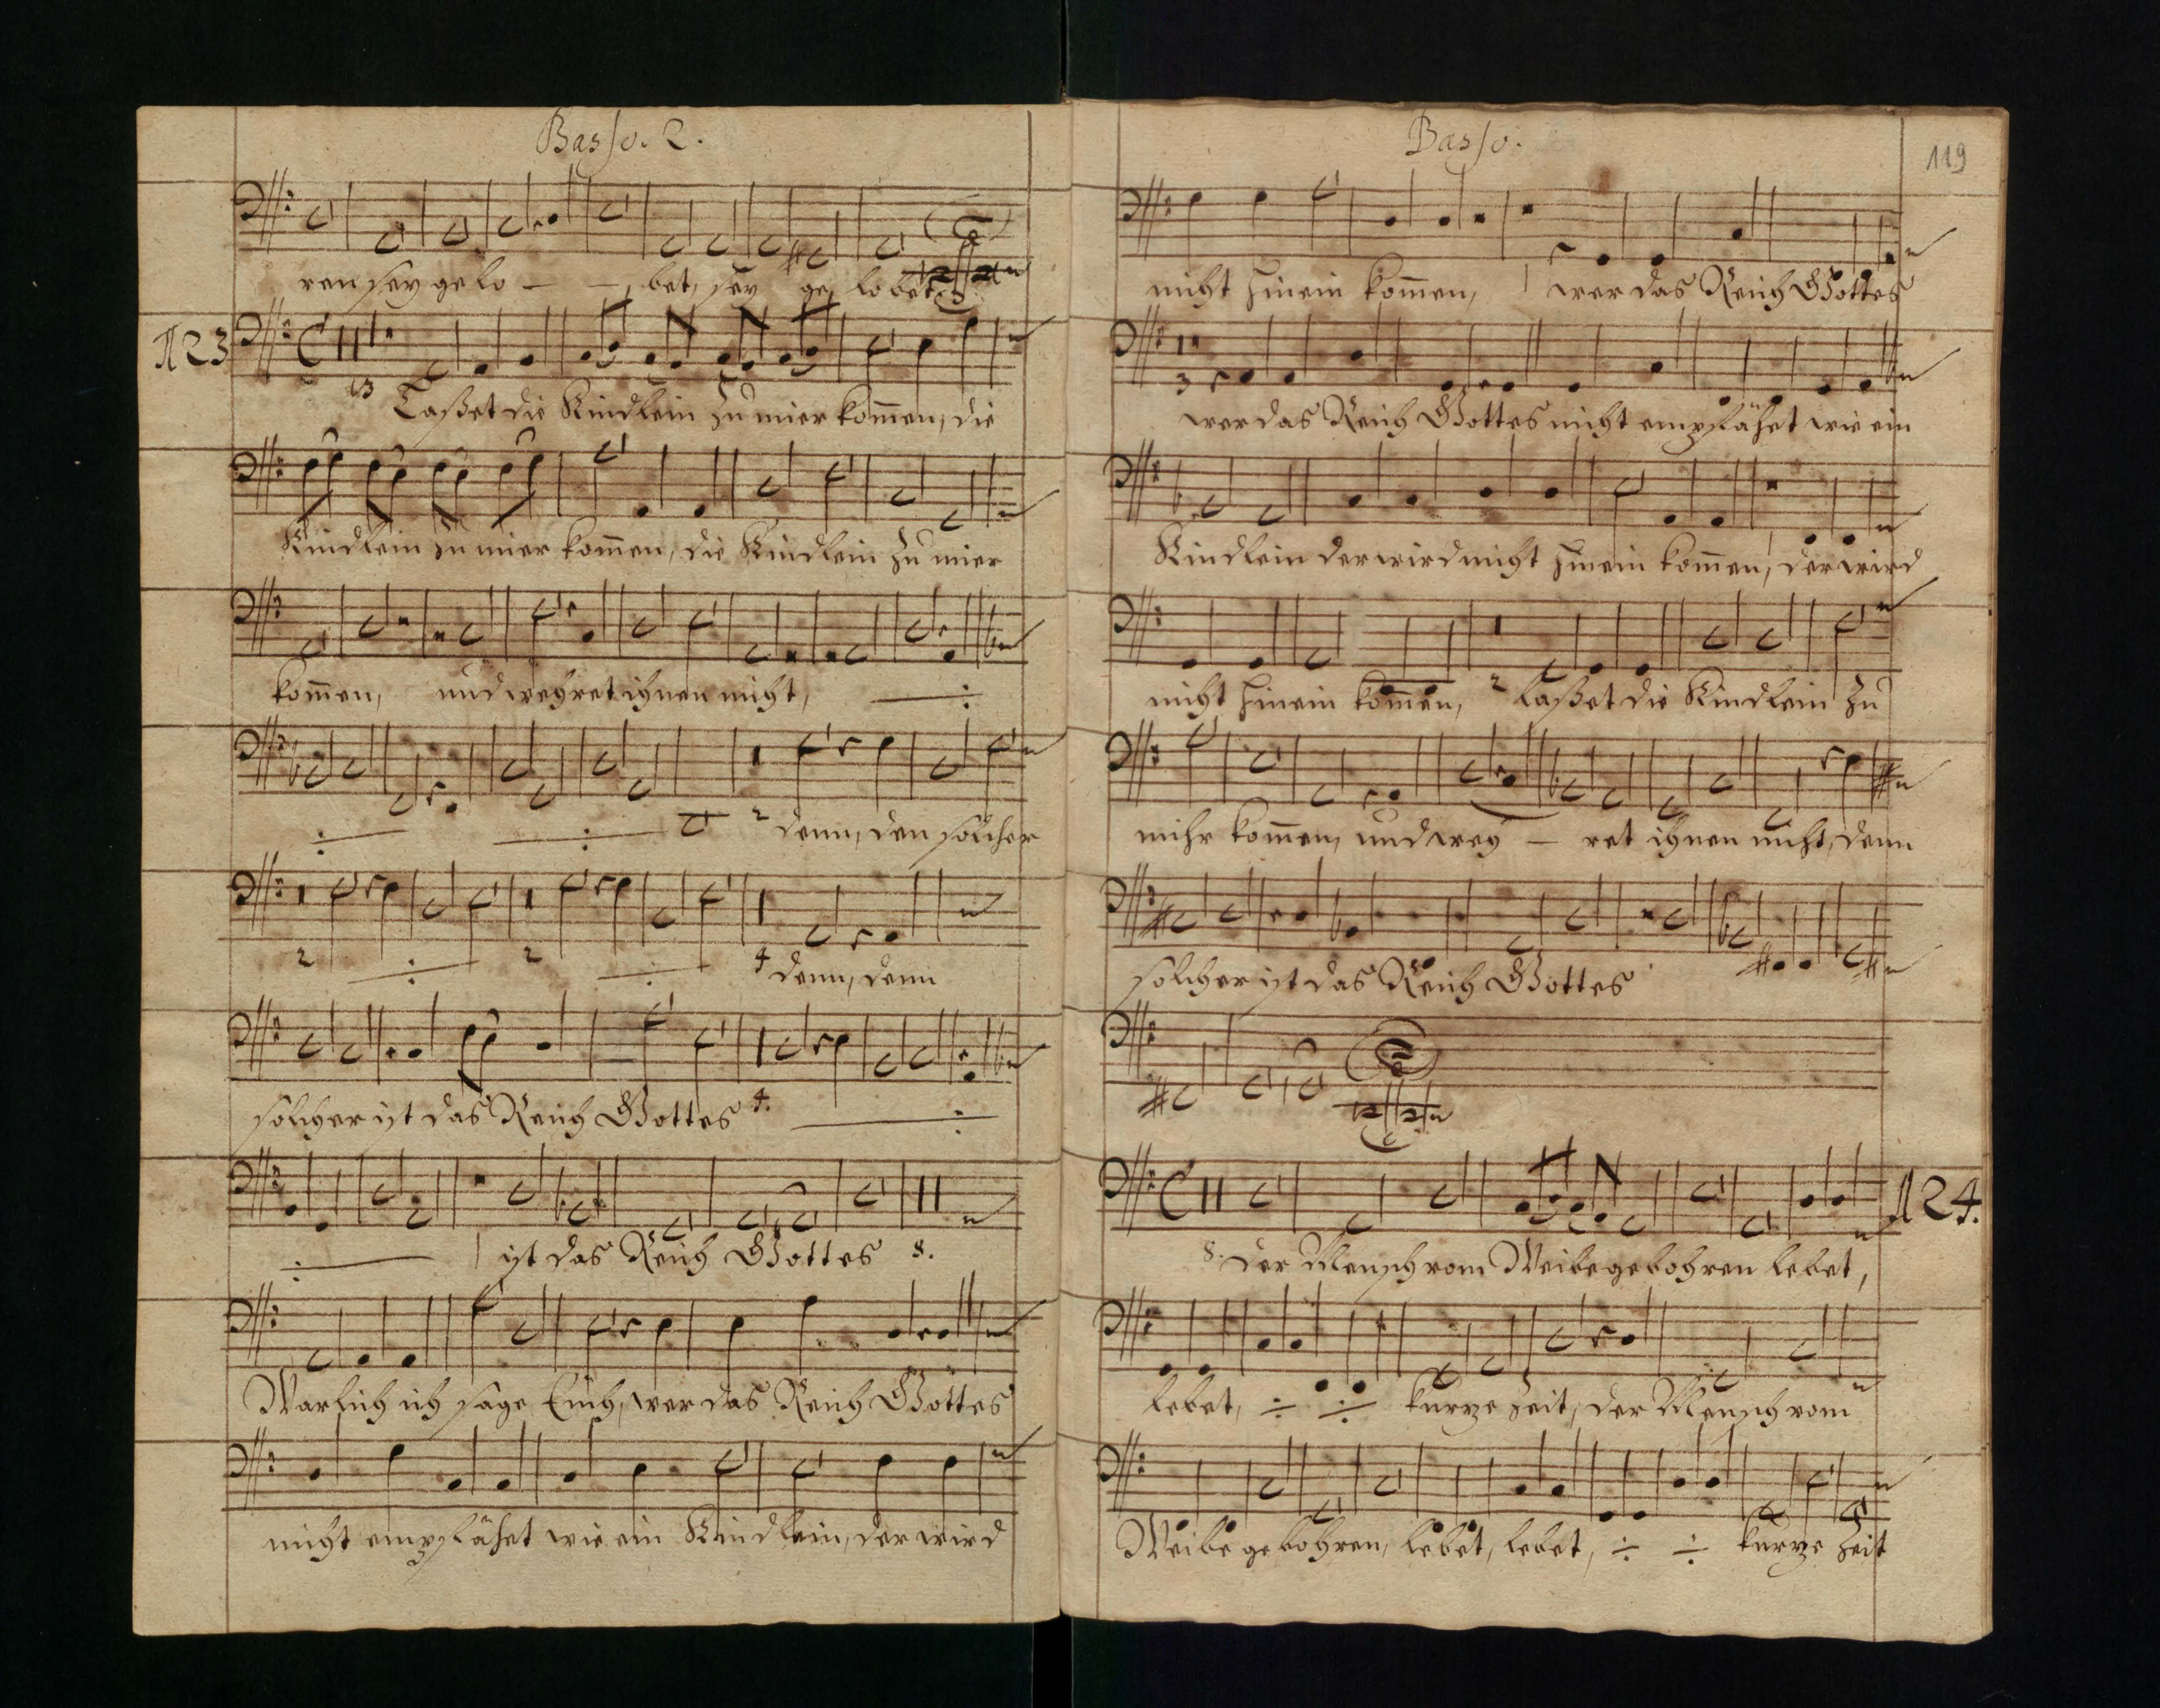 Basso. 2.
ren sey gelo - - bet, sey ge, lobet.
123
13
Laßet die Kindlein zu mier kom̄en, die
Kindlein zu mier kom̄en, die Kindlein zu mier
kom̄en, und wehret ihnen nicht,
2 denn, den solcher
2 2 4 denn, denn
solcher ist das Reich Gottes 4.
ist das Reich Gottes 8.
Warlich ich sage Euch, wer das Reich Gottes
nicht empfähet wie ein Kindlein, der wird
Basso.
119
nicht hinein kom̄en, wer das Reich Gottes
3 wer das Reich Gottes nicht empfähet wie ein
Kindlein der wird nicht hinein kom̄en, der wird
nicht hinein kom̄en, 2 laßet die Kindlein zu
mihr kom̄en, und weh - ret ihnen nicht, denn
solcher ist das Reich Gottes
124.
8. Der Mensch vom Weibe gebohren lebet,
lebet, kurze Zeit, der Mensch vom
Weibe gebohren, lebet, lebet, kurze Zeit